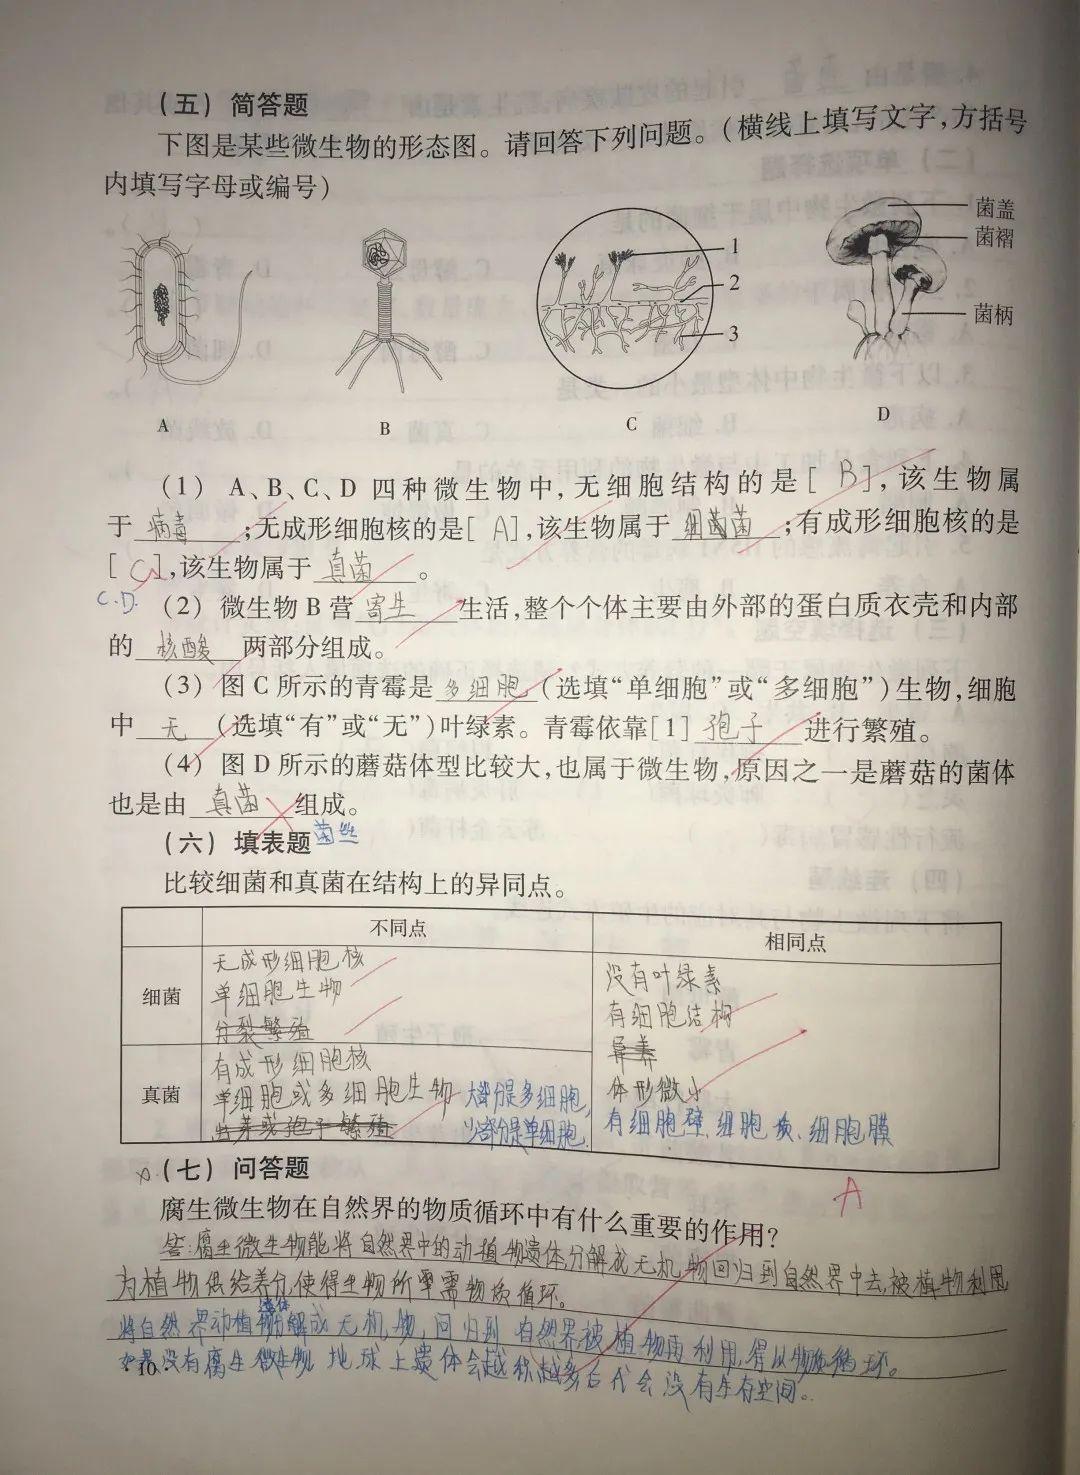 （五）简答题
下图是某些微生物的形态图。请回答下列问题。（横线上填写文字，方括号
内填写字母或编号）
菌盖
菌褶
菌柄
1
2
3
A
B
C
D
（1） A、B、C、D 四种微生物中，无细胞结构的是[ B]，该生物属
于 病毒 ；无成形细胞核的是[ A]，该生物属于 细菌 ；有成形细胞核的是
[ C]，该生物属于 真菌 。
C.D.
（2） 微生物 B 营 寄生 生活，整个个体主要由外部的蛋白质衣壳和内部
的 核酸 两部分组成。
（3）图 C 所示的青霉是 多细胞 （选填“单细胞”或“多细胞”）生物，细胞
中 无 （选填“有”或“无”）叶绿素。青霉依靠[1] 孢子 进行繁殖。
（4）图 D 所示的蘑菇体型比较大，也属于微生物，原因之一是蘑菇的菌体
也是由 真菌 组成。
菌丝
（六）填表题
比较细菌和真菌在结构上的异同点。
不同点
相同点
细菌
无成形细胞核
单细胞生物
分裂繁殖
真菌
有成形细胞核
单细胞或多细胞生物 大部分是多细胞，
出芽或孢子繁殖 少部分是单细胞.
没有叶绿素
有细胞结构
异养
体形微小
有细胞壁、细胞质、细胞膜
A
（七）问答题
腐生微生物在自然界的物质循环中有什么重要的作用？
答：腐生微生物能将自然界中的动植物遗体分解成无机物回归到自然界中去，被植物利用
为植物供给养分，使得生物所需物质循环。
遗体
将自然界动植物分解成无机物，回归到自然界被植物再利用，得以物质循环。
如果没有腐生微生物 地球上遗体会越积越多后代会没有生存空间。
10